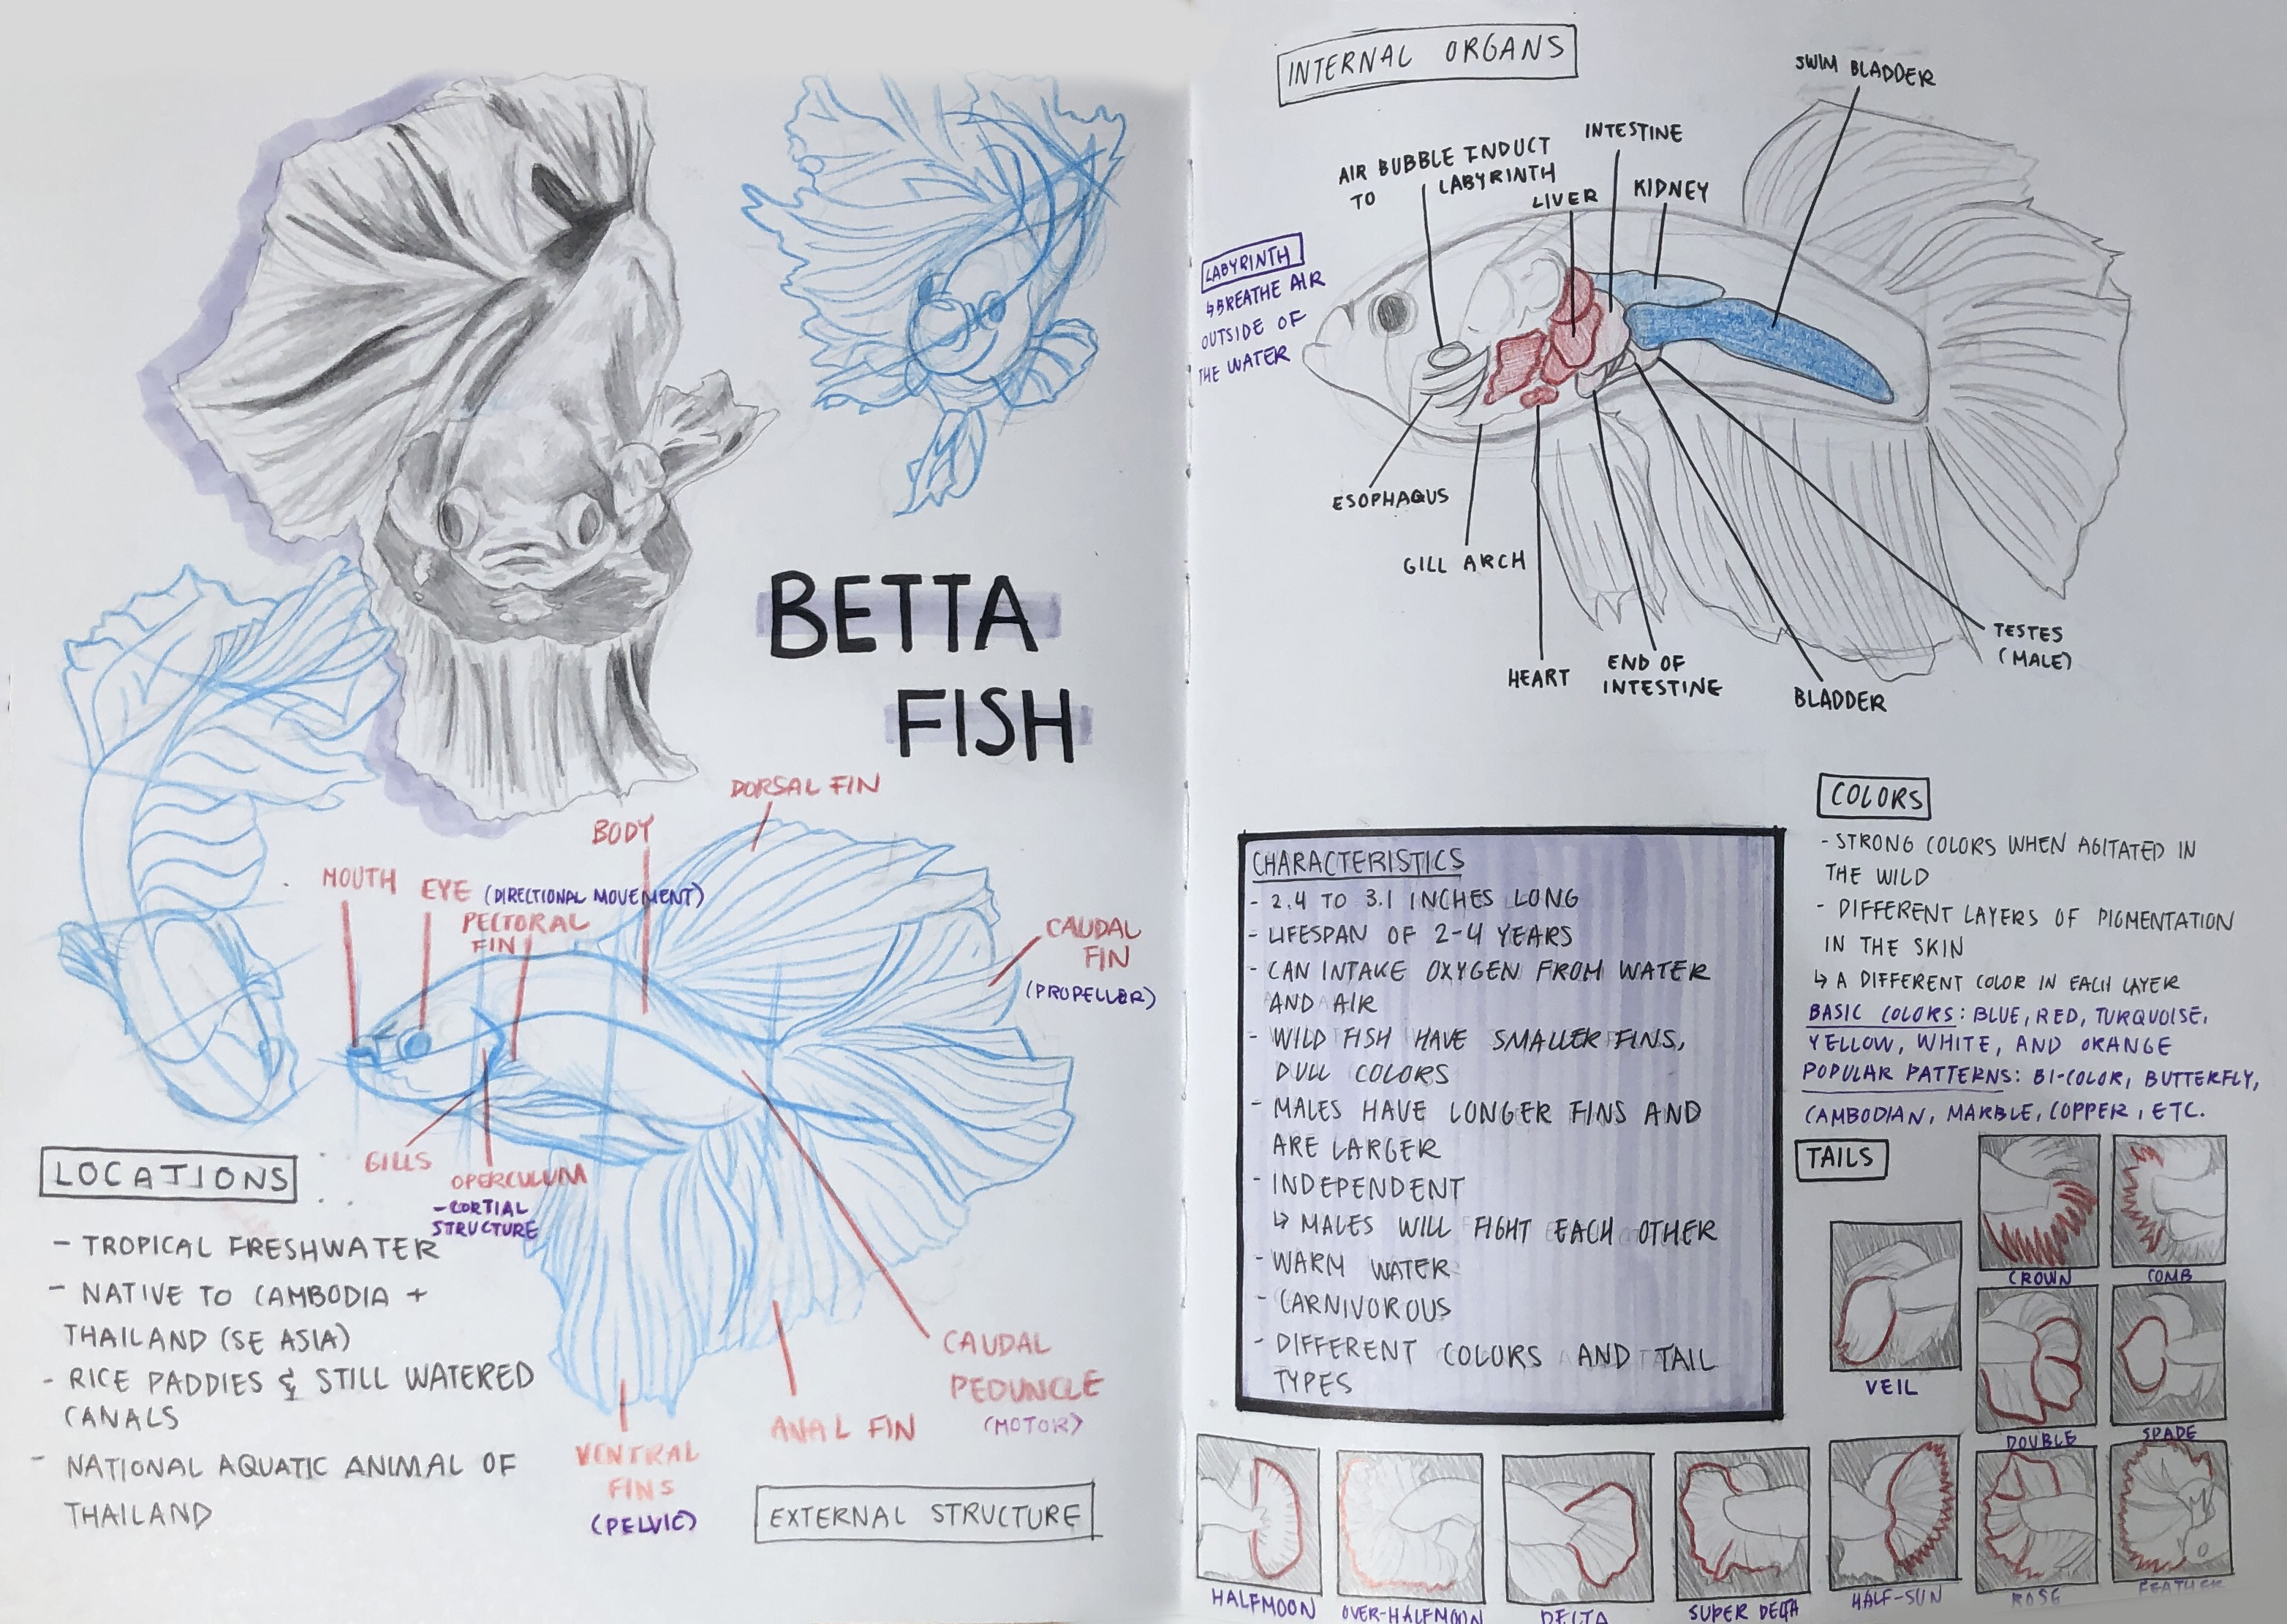 BETTA
FISH
DORSAL FIN
BODY
MOUTH
EYE (DIRECTIONAL MOVEMENT)
PECTORAL
FIN
CAUDAL
FIN
(PROPELLER)
GILLS
OPERCULUM
-CORTIAL
STRUCTURE
CAUDAL
PEDUNCLE
(MOTOR)
ANAL FIN
VENTRAL
FINS
(PELVIC)
EXTERNAL STRUCTURE
LOCATIONS
- TROPICAL FRESHWATER
- NATIVE TO CAMBODIA +
THAILAND (SE ASIA)
- RICE PADDIES & STILL WATERED
CANALS
- NATIONAL AQUATIC ANIMAL OF
THAILAND
INTERNAL ORGANS
SWIM BLADDER
INTESTINE
AIR BUBBLE INDUCT
TO LABYRINTH
LIVER
KIDNEY
LABYRINTH
↳BREATHE AIR
OUTSIDE OF
THE WATER
ESOPHAQUS
GILL ARCH
HEART
END OF
INTESTINE
BLADDER
TESTES
(MALE)
CHARACTERISTICS
- 2.4 TO 3.1 INCHES LONG
- LIFESPAN OF 2-4 YEARS
- CAN INTAKE OXYGEN FROM WATER
AND AIR
- WILD FISH HAVE SMALLER FINS,
DULL COLORS
- MALES HAVE LONGER FINS AND
ARE LARGER
- INDEPENDENT
↳ MALES WILL FIGHT EACH OTHER
- WARM WATER
- CARNIVOROUS
- DIFFERENT COLORS AND TAIL
TYPES
COLORS
- STRONG COLORS WHEN AGITATED IN
THE WILD
- DIFFERENT LAYERS OF PIGMENTATION
IN THE SKIN
↳ A DIFFERENT COLOR IN EACH LAYER
BASIC COLORS: BLUE, RED, TURQUOISE,
YELLOW, WHITE, AND ORANGE
POPULAR PATTERNS: BI-COLOR, BUTTERFLY,
CAMBODIAN, MARBLE, COPPER, ETC.
TAILS
CROWN
COMB
VEIL
DOUBLE
SPADE
HALFMOON
OVER-HALFMOON
DELTA
SUPER DELTA
HALF-SUN
ROSE
FEATHER